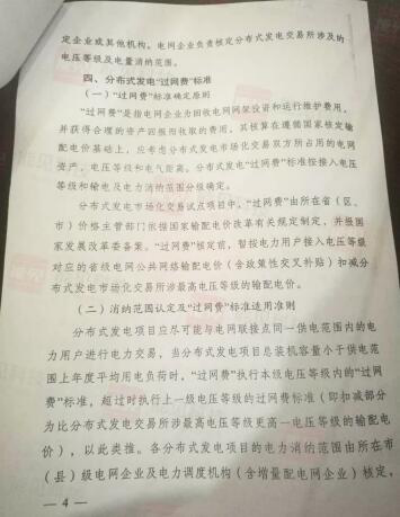 定企业或其他机构。电网企业负责核定分布式发电交易所涉及的
电压等级及电量消纳范围。
四、分布式发电“过网费”标准
（一）“过网费”标准确定原则
“过网费”是指电网企业为回收电网网架投资和运行维护费用，
并获得合理的资产回报而收取的费用，其核算在遵循国家核定输
配电价基础上，应考虑分布式发电市场化交易双方所占用的电网
资产、电压等级和电气距离。分布式发电“过网费”标准按接入电压
等级和输电及电力消纳范围分级确定。
分布式发电市场化交易试点项目中，“过网费”由所在省（区、
市）价格主管部门依据国家输配电价改革有关规定制定，并报国
家发展改革委备案。“过网费”核定前，暂按电力用户接入电压等级
对应的省级电网公共网络输配电价（含政策性交叉补贴）扣减分
布式发电市场化交易所涉最高电压等级的输配电价。
（二）消纳范围认定及“过网费”标准适用准则
分布式发电项目应尽可能与电网联接点同一供电范围内的电
力用户进行电力交易，当分布式发电项目总装机容量小于供电范
围上年度平均用电负荷时，“过网费”执行本级电压等级内的“过网
费”标准，超过时执行上一级电压等级的过网费标准（即扣减部分
为比分布式发电交易所涉最高电压等级更高一电压等级的输配电
价），以此类推。各分布式发电项目的电力消纳范围由所在市
（县）级电网企业及电力调度机构（含增量配电网企业）核定，
— 4 —